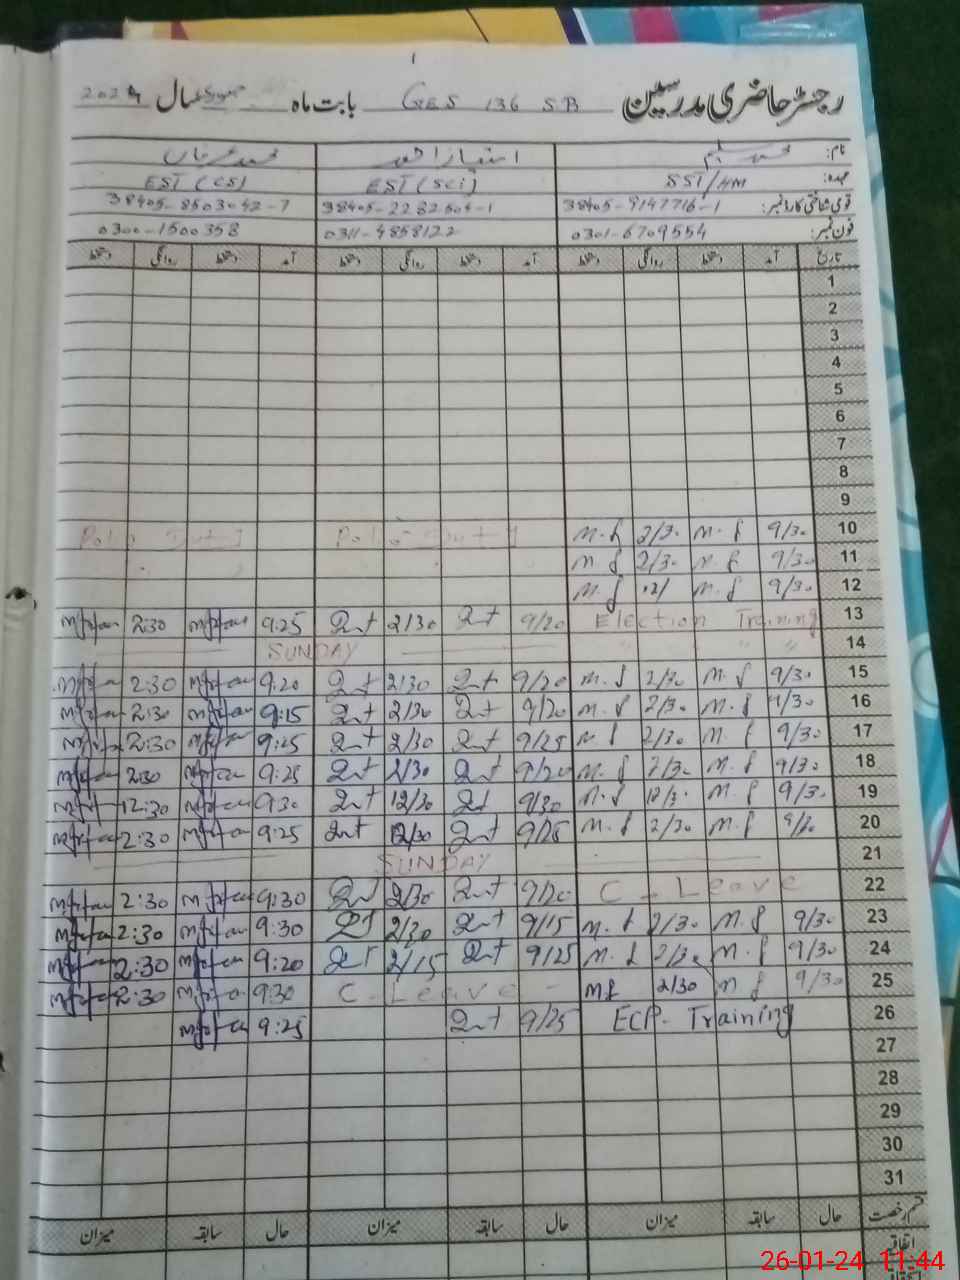 رجسٹر حاضری مدرسین GES 136 SB بابت ماہ جنوری سال 2024
نام: محمد سلیم امتیاز احمد محمد عرفان
عہدہ: SST/HM EST (Sci) EST (CS)
قومی شناختی کارڈ نمبر: 38405-9147716-1 38405-2282504-1 38405-8503042-7
فون نمبر: 0301-6709554 0311-4858122 0300-1500358
تاریخ آمد دستخط روانگی دستخط آمد دستخط روانگی دستخط آمد دستخط روانگی دستخط
1
2
3
4
5
6
7
8
9
Polio Duty Polio Duty M.S 2/30 M.S 9/30 10
M.S 2/30 M.S 9/30 11
M.S 12/ M.S 9/30 12
Mirfan 2:30 Mirfan 9:25 2/30 9/20 Election Training 13
SUNDAY " " " " 14
Mirfan 2:30 Mirfan 9:20 2/30 9/20 M.S 2/30 M.S 9/30 15
Mirfan 2:30 Mirfan 9:15 2/30 9/20 M.S 2/30 M.S 9/30 16
Mirfan 2:30 Mirfan 9:25 2/30 9/25 M.S 2/30 M.S 9/30 17
Mirfan 2:30 Mirfan 9:25 2/30 9/20 M.S 2/30 M.S 9/30 18
Mirfan 12:30 Mirfan 9:30 12/30 9/30 M.S 12/30 M.S 9/30 19
Mirfan 2:30 Mirfan 9:25 12/30 9/25 M.S 2/30 M.S 9/30 20
SUNDAY 21
Mirfan 2:30 Mirfan 9:30 2/30 9/20 C-Leave 22
Mirfan 2:30 Mirfan 9:30 2/30 9/15 M.S 2/30 M.S 9/30 23
Mirfan 2:30 Mirfan 9:20 2/15 9/25 M.S 2/30 M.S 9/30 24
Mirfan 2:30 Mirfan 9:30 C-Leave - MS 2/30 M S 9/30 25
Mirfan 9:25 9/25 ECP-Training 26
27
28
29
30
31
قسم رخصت حال سابقہ میزان حال سابقہ میزان حال سابقہ میزان
اتفاقیہ
26-01-24 11:44